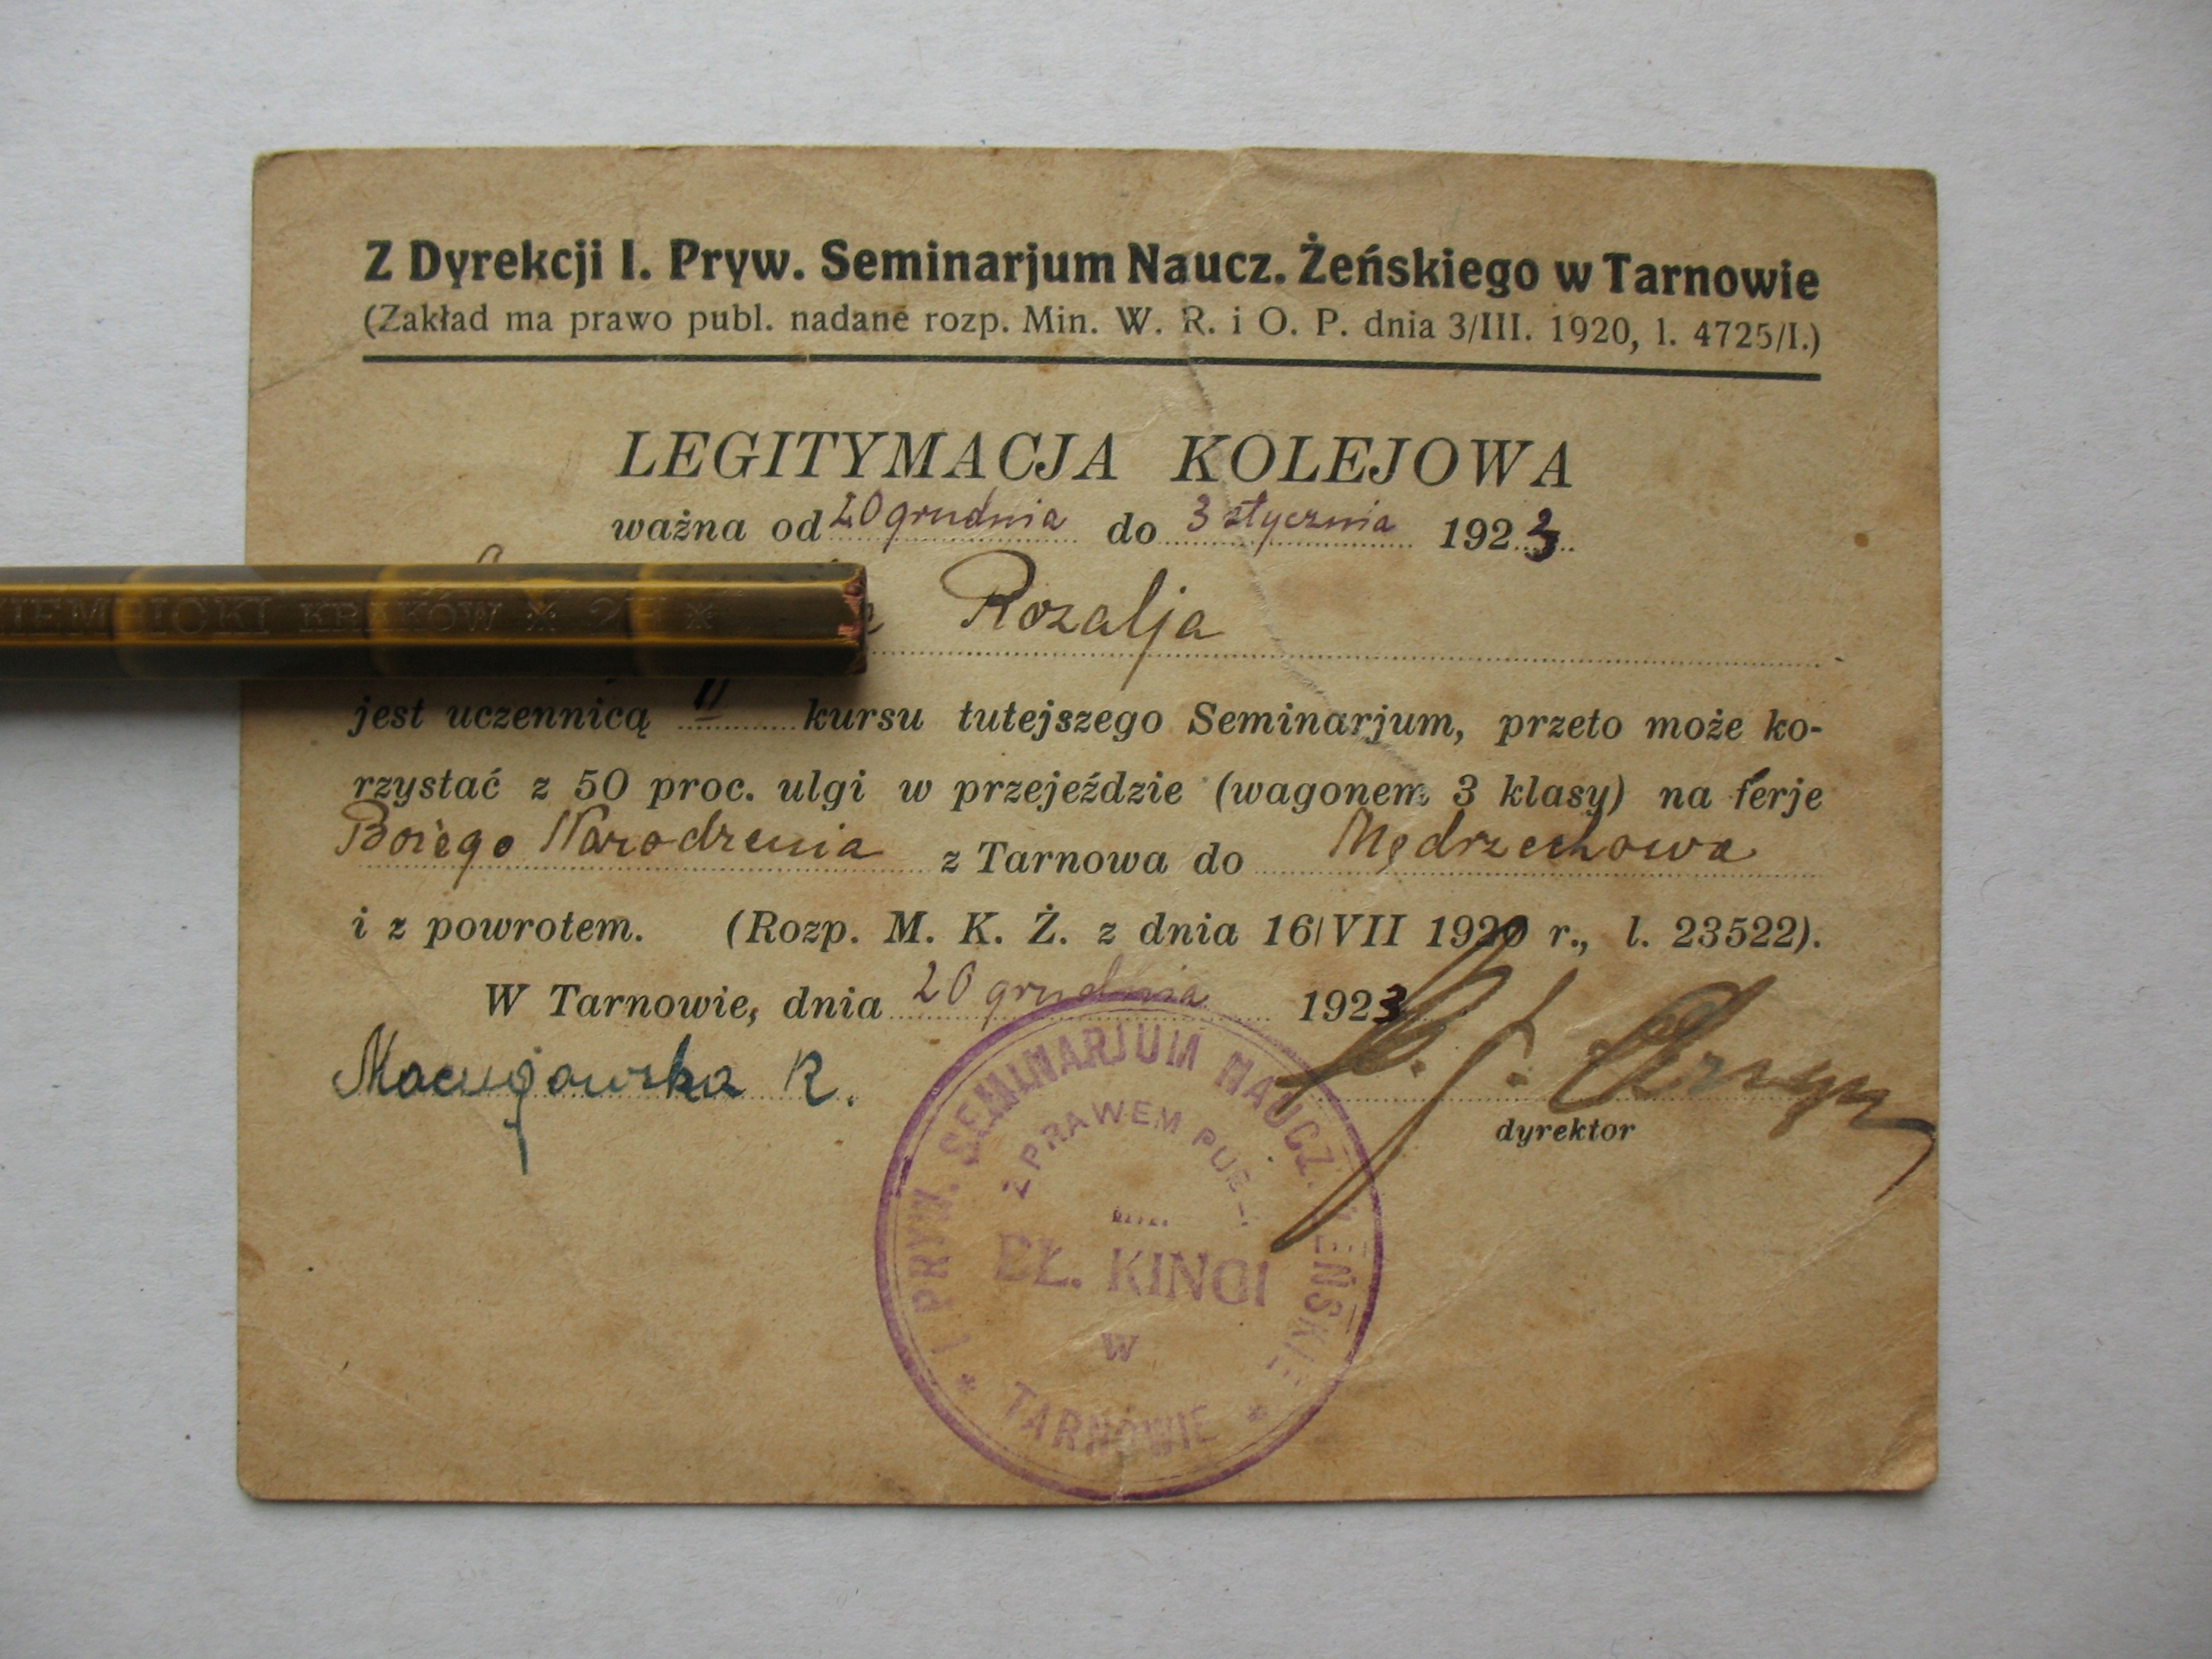 Z Dyrekcji I. Pryw. Seminarjum Naucz. Żeńskiego w Tarnowie
(Zakład ma prawo publ. nadane rozp. Min. W. R. i O. P. dnia 3/III. 1920, l. 4725/I.)
LEGITYMACJA KOLEJOWA
ważna od 20 grudnia do 3 stycznia 1923
Rozalja
KRAKÓW * 2H *
jest uczennicą II kursu tutejszego Seminarjum, przeto może ko-
rzystać z 50 proc. ulgi w przejeździe (wagonem 3 klasy) na ferje
Bożego Narodzenia z Tarnowa do Mędrzechowa
i z powrotem. (Rozp. M. K. Ż. z dnia 16/VII 1920 r., l. 23522).
W Tarnowie, dnia 20 grudnia 1923
R.
dyrektor
I PRYW. SEMINARJUM NAUCZ. ŻEŃSKIE
Z PRAWEM PUBL.
BŁ. KINGI
W
* TARNOWIE *